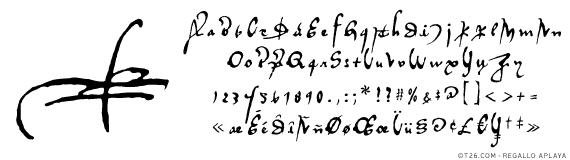 AaBbCcDdEeFfGgHhIiJjKkLlMmNn
OoPpQqRrSsTtUuVvWwXxYyZz
1234561890.,:;*!?#%&$@[]<>+=
«æÉéÔîÑñØøŒœÜü§Ð¢£€¥†‡»
©T26.COM - REGALLO APLAYA